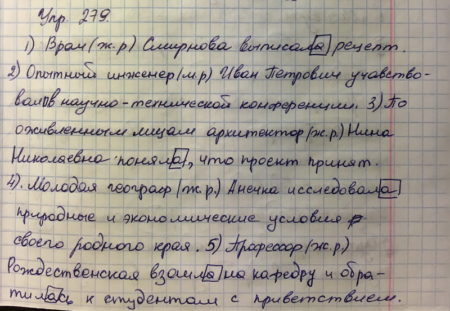 Упр. 279.
1) Врач (ж.р) Смирнова выписала рецепт.
2) Опытный инженер (м.р) Иван Петрович учавство-
вал в научно-технической конференции. 3) По
оживлённым лицам архитектор (ж.р) Нина
Николаевна поняла, что проект принят.
4). Молодая географ (ж.р.) Анечка исследовала
природные и экономические условия
своего родного края. 5) Профессор (ж.р)
Рождественская взошла на кафедру и обра-
тилась к студентам с приветствием.